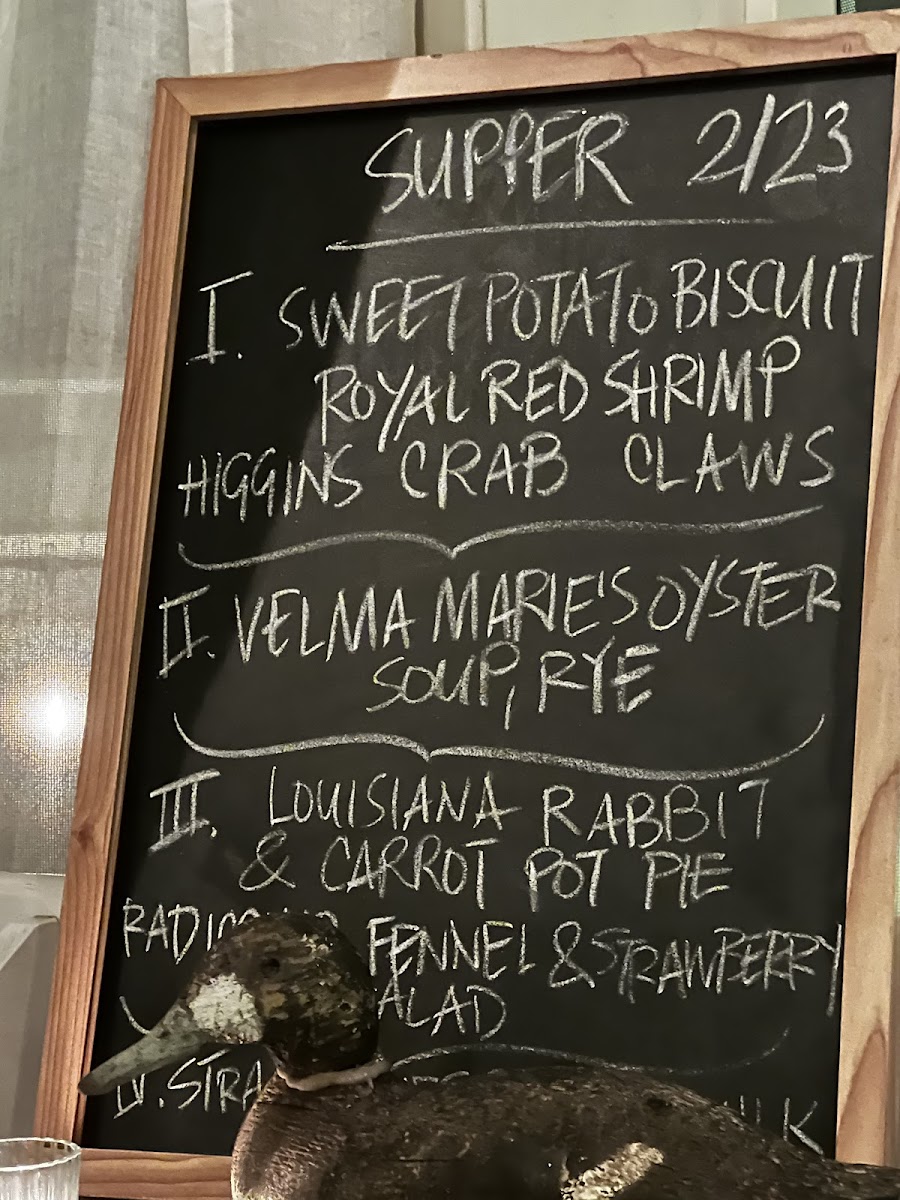 SUPPER 2/23
I. SWEET POTATO BISCUIT
ROYAL RED SHRIMP
HIGGINS CRAB CLAWS
II. VELMA MARIE'S OYSTER
SOUP, RYE
III. LOUISIANA RABBIT
& CARROT POT PIE
FENNEL & STRAWBERRY
IV.